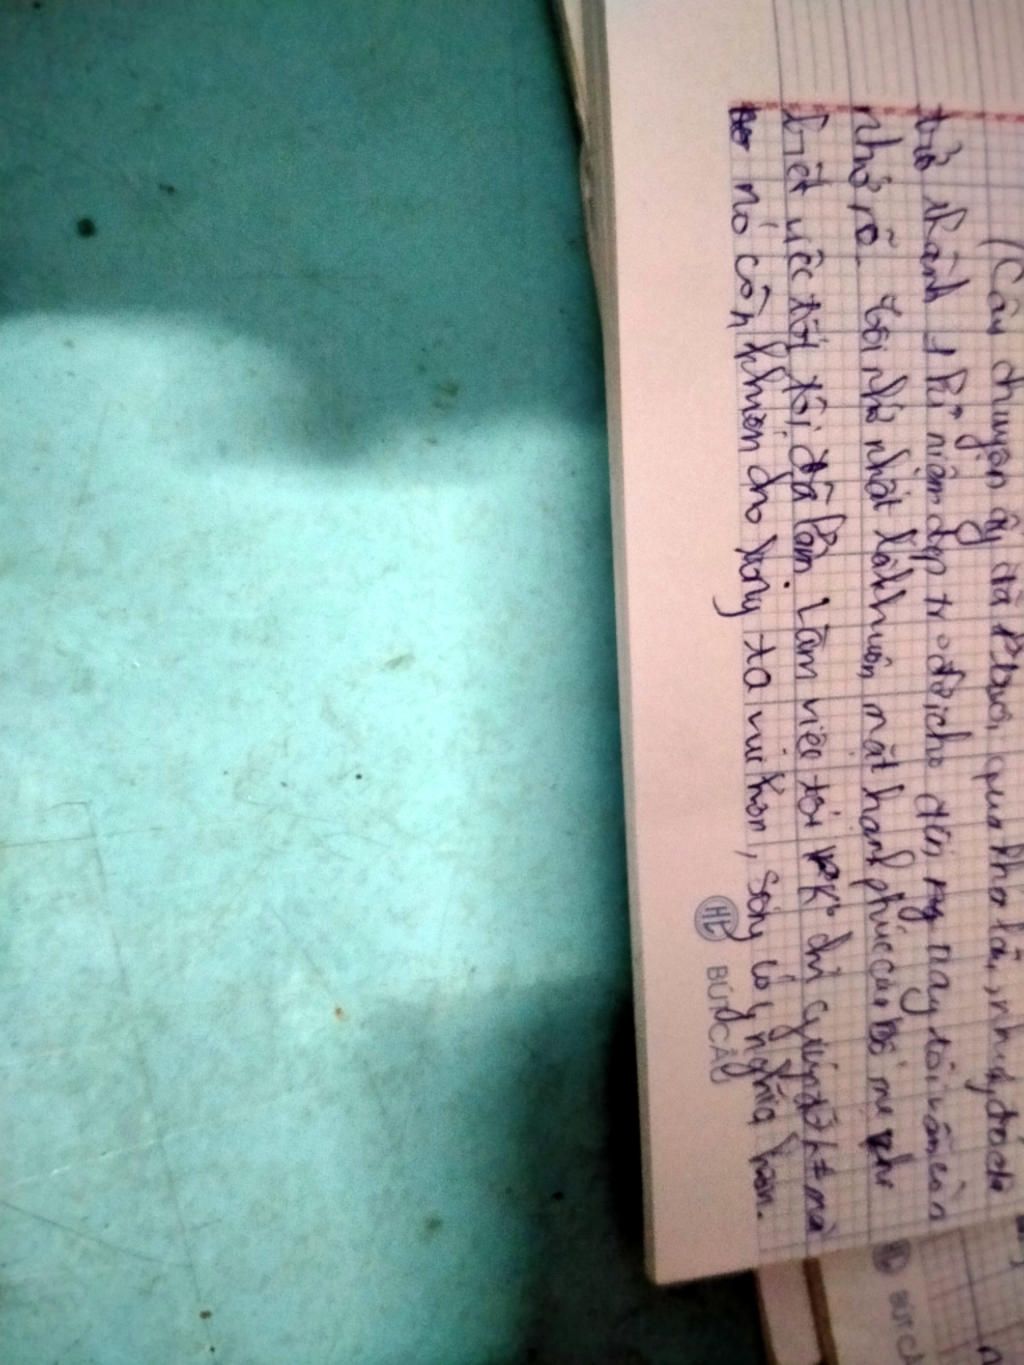 (Câu chuyện ấy đã qua khá lâu, nhưng đã
trở thành 1 kỉ niệm đẹp đến nay tôi vẫn còn
nhớ rõ. Tôi nhớ nhất là khuôn mặt hạnh phúc của bố mẹ khi
biết việc tốt tôi đã làm. Làm việc tốt K° chỉ giúp đỡ mà
nó còn khiến cho lòng ta vui hơn, sống có ý nghĩa hơn.
HL BÚT CẦU
BÚT C